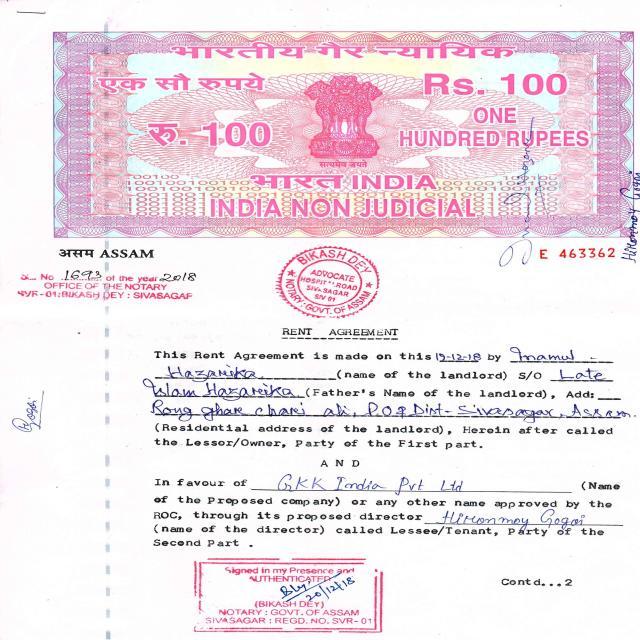 भारतीय गैर न्यायिक
एक सौ रुपये
Rs. 100
रु. 100
ONE
HUNDRED RUPEES
सत्यमेव जयते
भारत INDIA
INDIA NON JUDICIAL
Hironmoy Gogoi
असम ASSAM
E 463362
No 1693 of the year 2018
OFFICE OF THE NOTARY
SVR-01:BIKASH DEY: SIVASAGAR
BIKASH DEY
ADVOCATE
HOSPITAL ROAD
SIVASAGAR
SIV 01
NOTARY: GOVT. OF ASSAM
RENT AGREEMENT
This Rent Agreement is made on this 19-12-18 by Inamul
Hazarika (name of the landlord) S/O Late
Islam Hazarika (Father's Name of the landlord), Add:
Rong ghar chari ali, P.O & Dist- Sivasagar, Assam.
(Residential address of the landlord), Herein after called
the Lessor/Owner, Party of the First part.
A N D
In favour of GKK India Pvt Ltd (Name
of the Proposed company) or any other name approved by the
ROC, through its proposed director Hironmoy Gogoi
(name of the director) called Lessee/Tenant, Party of the
Second Part .
Signed in my Presence and
AUTHENTICATED
20/12/18
(BIKASH DEY)
NOTARY : GOVT. OF ASSAM
SIVASAGAR : REGD. NO. SVR- 01
Contd...2